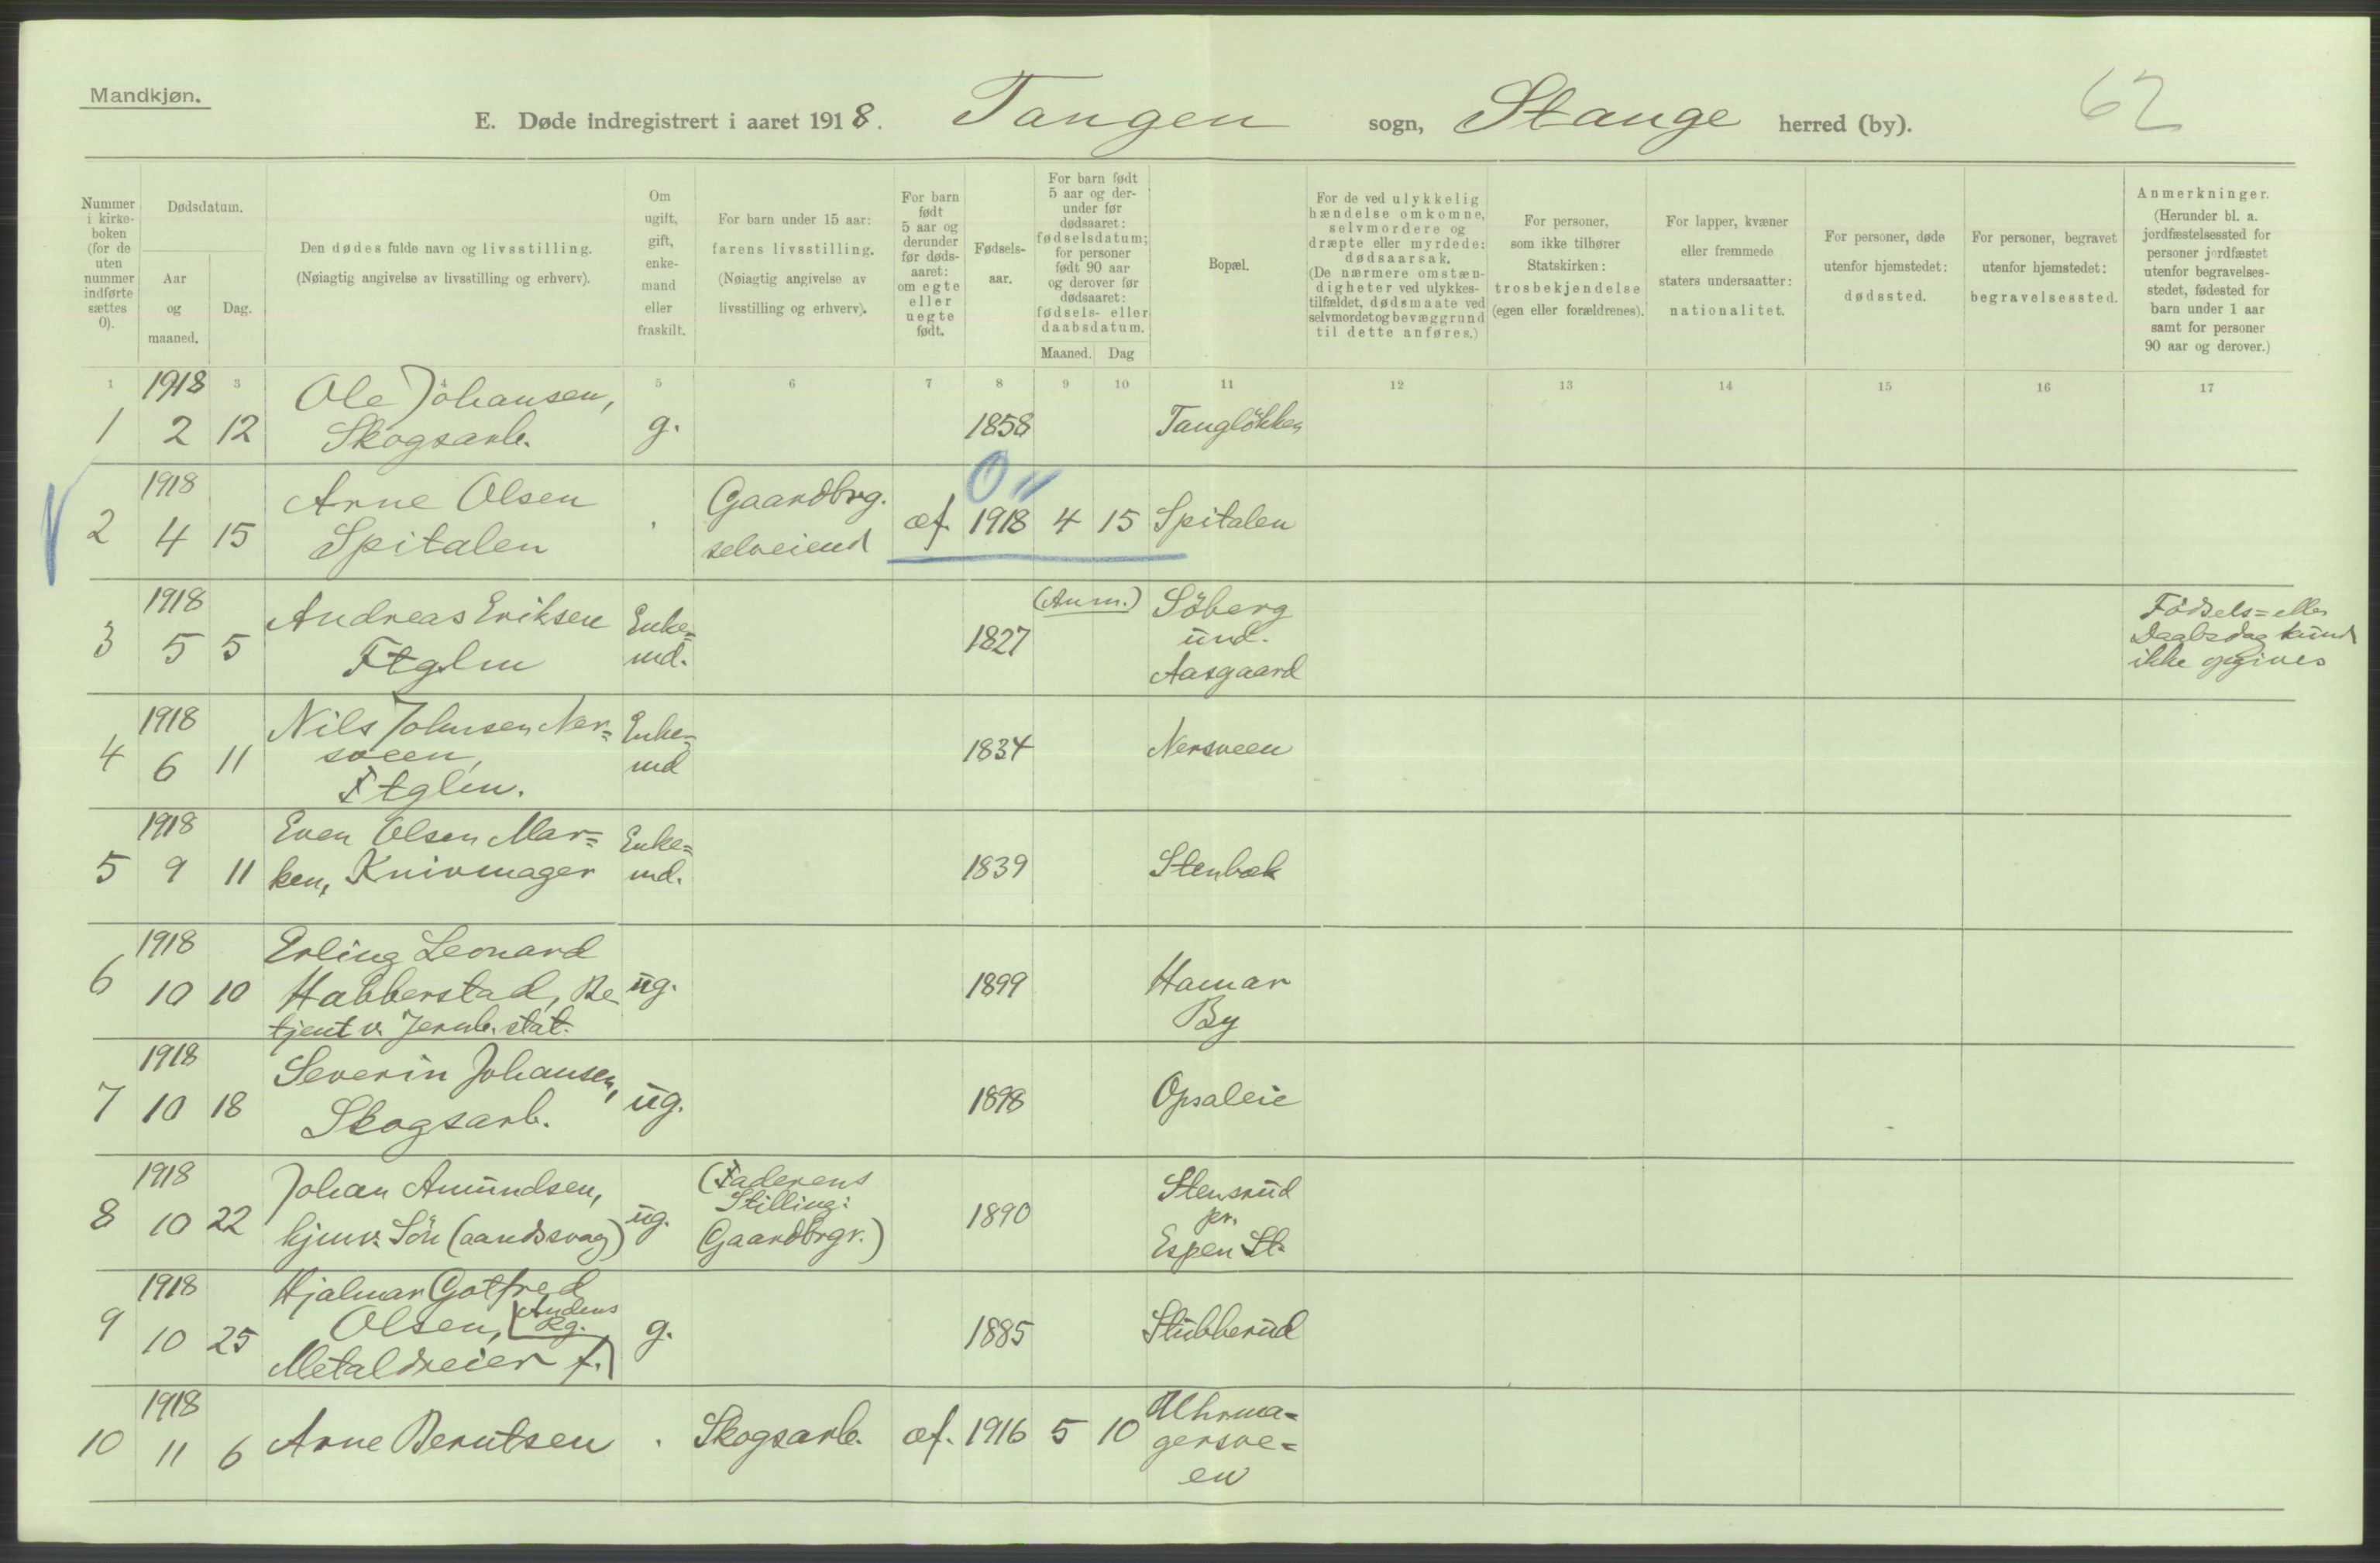 Mandkjøn.
E. Døde indregistrert i aaret 1918. Tangen sogn, Stange herred (by). 62
Nummer i kirke-boken (for de uten nummer indførte sættes 0).
Dødsdatum.
Aar og maaned.
Dag.
Den dødes fulde navn og livsstilling.
(Nøiagtig angivelse av livsstilling og erhverv).
Om ugift, gift, enke-mand eller fraskilt.
For barn under 15 aar: farens livsstilling.
(Nøiagtig angivelse av livsstilling og erhverv).
For barn født 5 aar og derunder før døds-aaret: om egte eller uegte født.
Fødsels-aar.
For barn født 5 aar og der-under før dødsaaret: fødselsdatum; for personer født 90 aar og derover før dødsaaret: fødsels- eller daabsdatum.
Maaned. Dag
Bopæl.
For de ved ulykkelig hændelse omkomne, selvmordere og dræpte eller myrdede: dødsaarsak.
(De nærmere omstæn-digheter ved ulykkes-tilfældet, dødsmaate ved selvmordet og bevæggrund til dette anføres.)
For personer, som ikke tilhører Statskirken: trosbekjendelse (egen eller forældrenes).
For lapper, kvæner eller fremmede staters undersaatter: nationalitet.
For personer, døde utenfor hjemstedet: dødssted.
For personer, begravet utenfor hjemstedet: begravelsessted.
Anmerkninger.
(Herunder bl. a. jordfæstelsessted for personer jordfæstet utenfor begravelses-stedet, fødested for barn under 1 aar samt for personer 90 aar og derover.)
1 3 5 6 7 8 9 10 11 12 13 14 15 16 17
1918 Ole Johansen,
1 2 12 Skogsarb. g. 1858 Tangløkken
1918 Arne Olsen Gaardbrg. 0
2 4 15 Spitalen selveiend æf. 1918 4 15 Spitalen
1918 Andreas Eriksen Enke= (Anm.) Söberg Födsels= eller
3 5 5 Ftglm md. 1827 und. Daabsdag kund
Aasgaard ikke opgives
1918 Nils Johnsen Ner= Enke=
4 6 11 sveen, md 1834 Nersveen
Ftglm.
1918 Even Olsen Mar= Enke=
5 9 11 ken, Knivmager md. 1839 Stenbæk
1918 Erling Leonard
6 10 10 Habberstad, Be ug. 1899 Hamar
tjent v. Jernb. stat. By
1918 Severin Johansen,
7 10 18 Skogsarb. ug. 1898 Opsaleie
1918 Johan Amundsen, (Faderens Stensrud
8 10 22 hjmv. Sön (aandssvag) ug. Stilling: 1890 pr.
Gaardbrgr.) Espen St.
1918 Hjalmar Gotfred
9 10 25 Olsen, (Andens Rg. g. 1885 Stubberud
Metaldreier f.)
1918 Uhrma=
10 11 6 Arne Berntsen Skogsarb. æf. 1916 5 10 gersve=
en